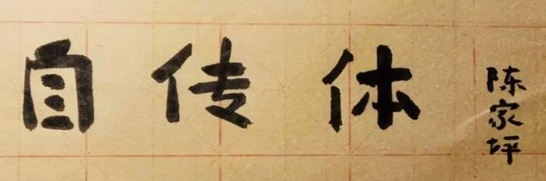 自传体
陈家坪